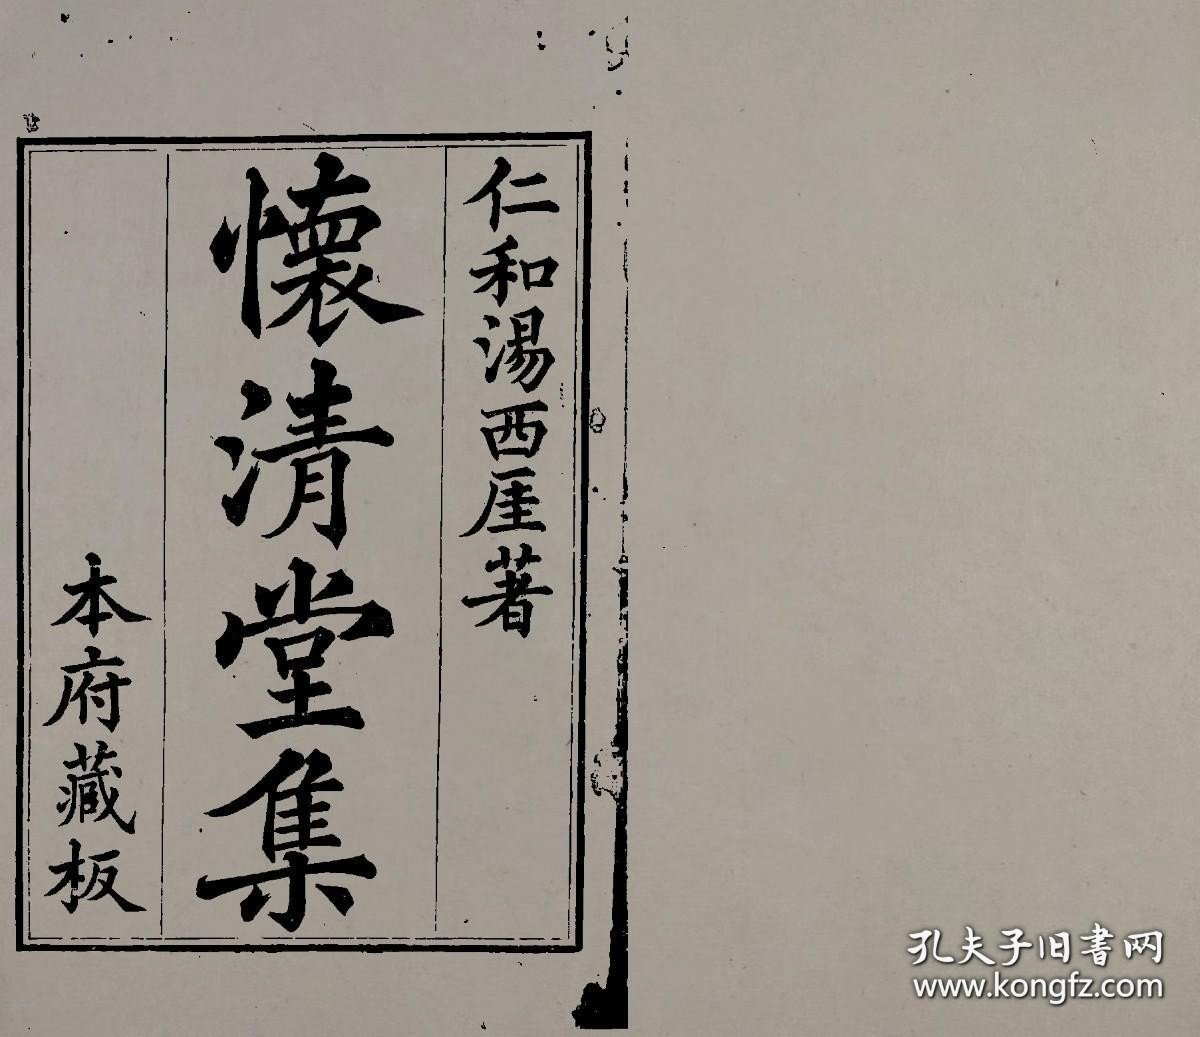 仁和湯西厓著
懷清堂集
本府藏板
孔夫子旧書网
www.kongfz.com